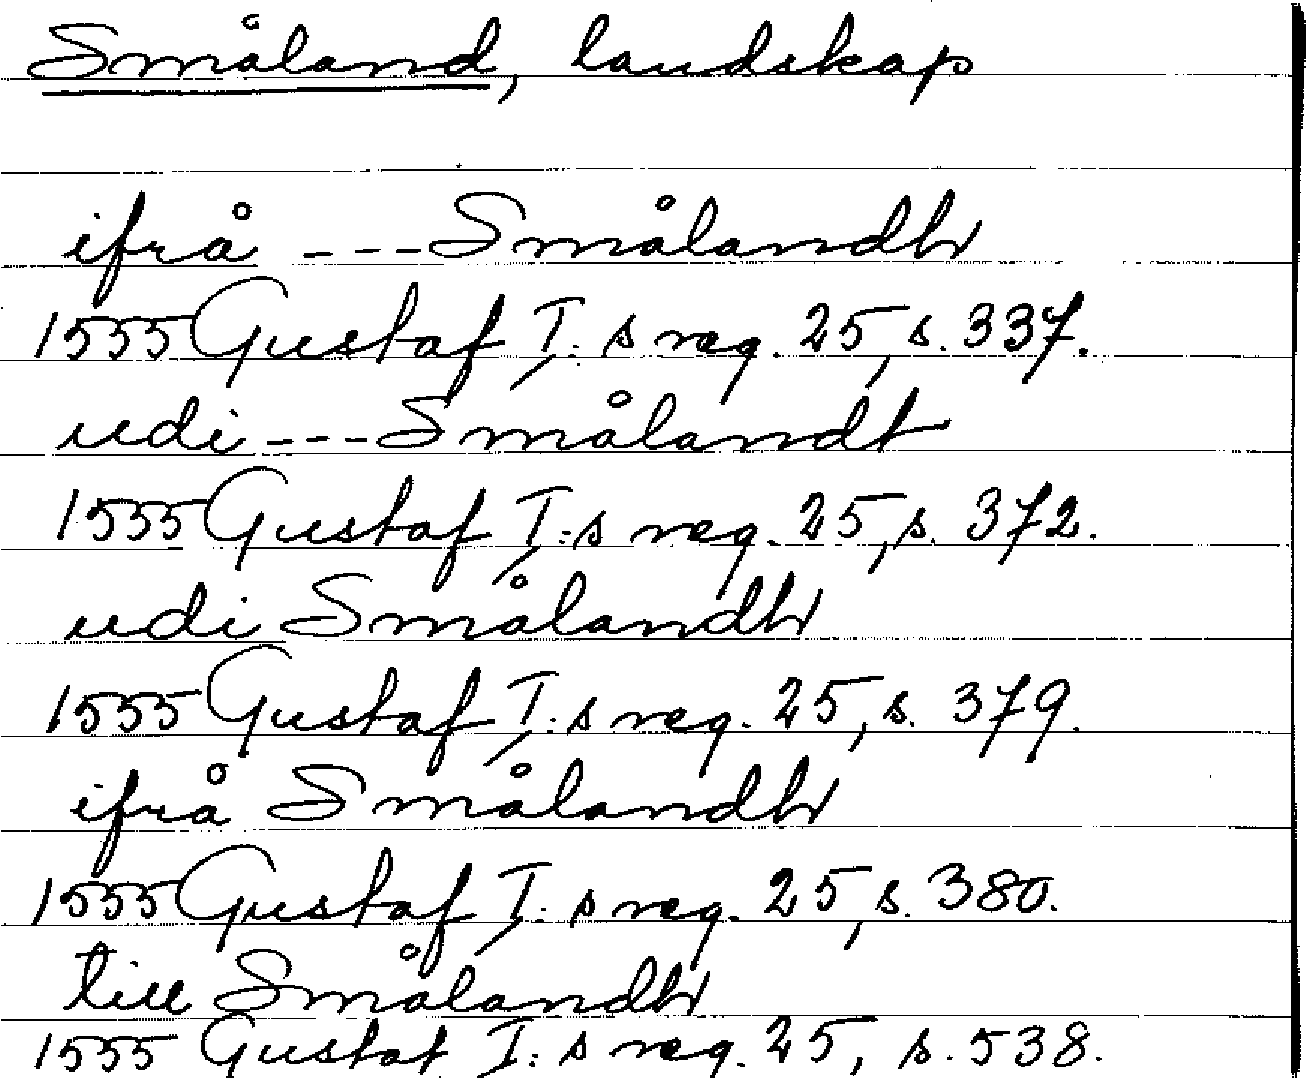 Småland, landskap
ifrå --- Smålandh
1555 Gustaf I:s reg. 25, s. 337.
udi --- Smålandt
1555 Gustaf I:s reg. 25, s. 372.
udi Smålandh
1555 Gustaf I:s reg. 25, s. 379.
ifrå Smålandh
1555 Gustaf I:s reg. 25, s. 380.
till Smålandh
1555 Gustaf I:s reg. 25, s. 538.